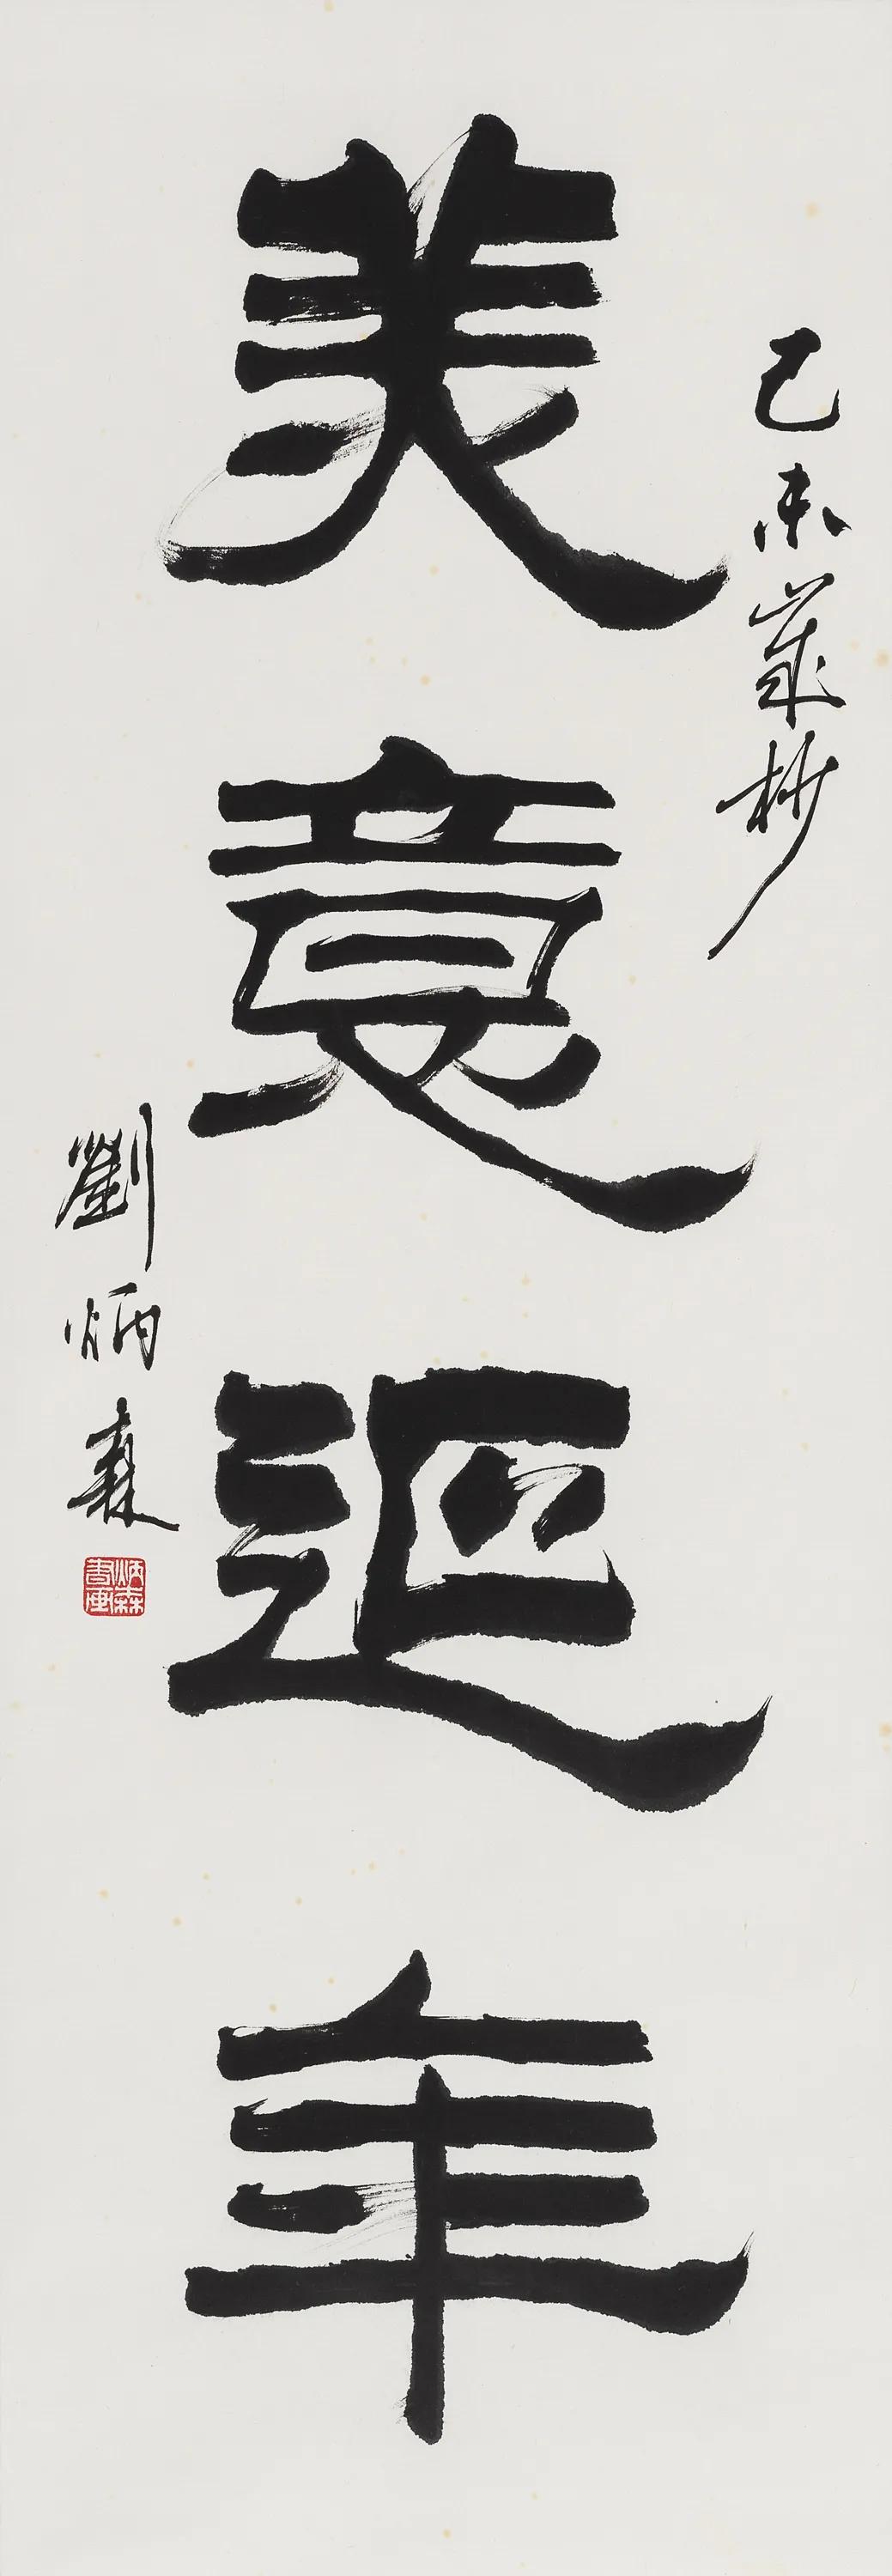 己未歲杪
美意延年
劉炳森
炳森
書画